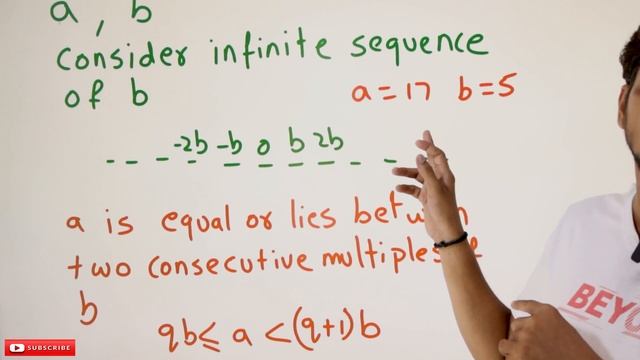 a, b
Consider infinite sequence
of b
a = 17 b = 5
- - - -2b -b 0 b 2b - -
a is equal or lies between
two consecutive multiples
b
qb ≤ a < (q+1)b
BEYO
SUBSCRIBE